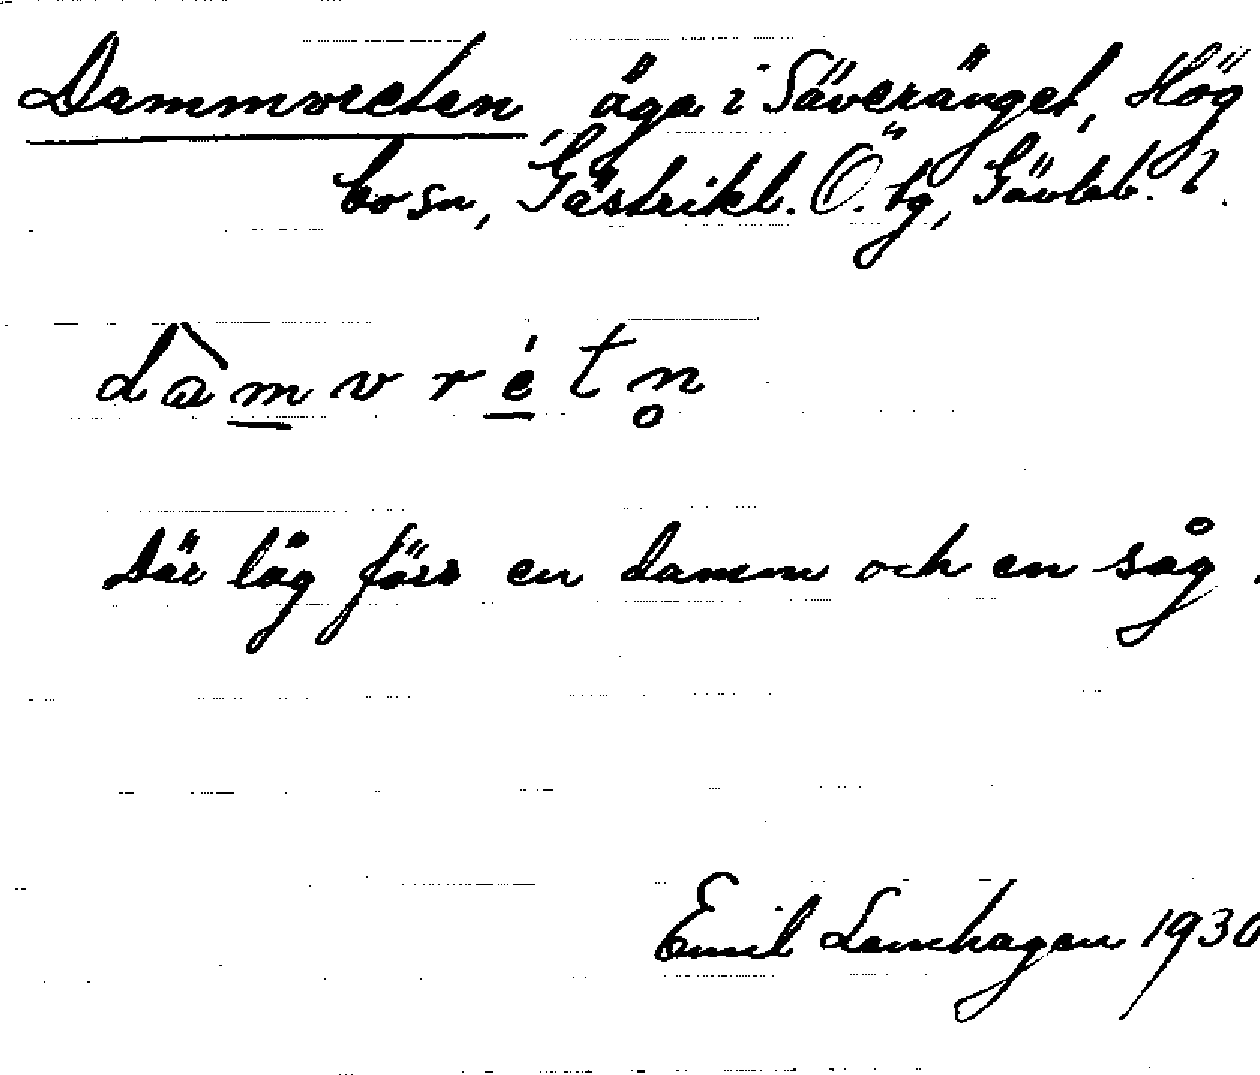 Dammvreten äga i Säveränget, Hög
bo sn, Gästrikl. Ö. tg, Gävleb. l.
dàmvrétn̥
Där låg förr en damm och en såg.
Emil Lamhagen 1930